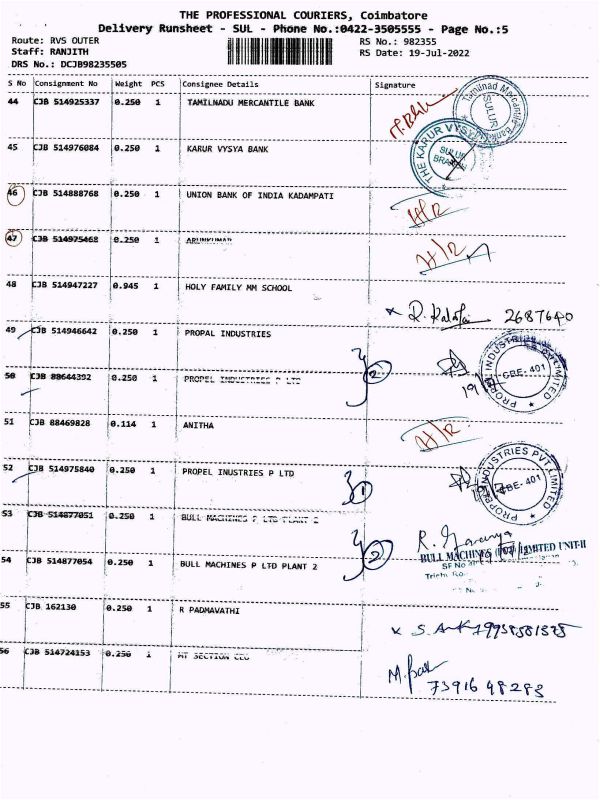 THE PROFESSIONAL COURIERS, Coimbatore
Delivery Runsheet - SUL - Phone No.:0422-3505555 - Page No.:5
Route: RVS OUTER RS No.: 982355
Staff: RANJITH RS Date: 19-Jul-2022
DRS No.: DCJB98235505
S No Consignment No Weight PCS Consignee Details Signature
44 CJB 514925337 0.250 1 TAMILNADU MERCANTILE BANK
Tamilnad Mercantile Bank
SULUR
45 CJB 514976084 0.250 1 KARUR VYSYA BANK
THE KARUR VYSYA
SULUR
BRANCH
46 CJB 514888768 0.250 1 UNION BANK OF INDIA KADAMPATI
H/R
47 CJB 514975468 0.250 1 ARUNKUMAR
H/R
48 CJB 514947227 0.945 1 HOLY FAMILY MM SCHOOL
2687640
49 CJB 514946642 0.250 1 PROPAL INDUSTRIES
2
CBE- 401
50 CJB 88644392 0.250 1 PROPEL INDUSTRIES P LTD
51 CJB 88469828 0.114 1 ANITHA
H/R
52 CJB 514975840 0.250 1 PROPEL INUSTRIES P LTD
1
INDUSTRIES PVT LIMITED
CBE- 401
53 CJB 514877051 0.250 1 BULL MACHINES P LTD PLANT 2
2
BULL MACHINES LIMITED UNIT-II
SF No
54 CJB 514877054 0.250 1 BULL MACHINES P LTD PLANT 2
55 CJB 162130 0.250 1 R PADMAVATHI
56 CJB 514724153 0.250 1 MT SECTION
73916 48283